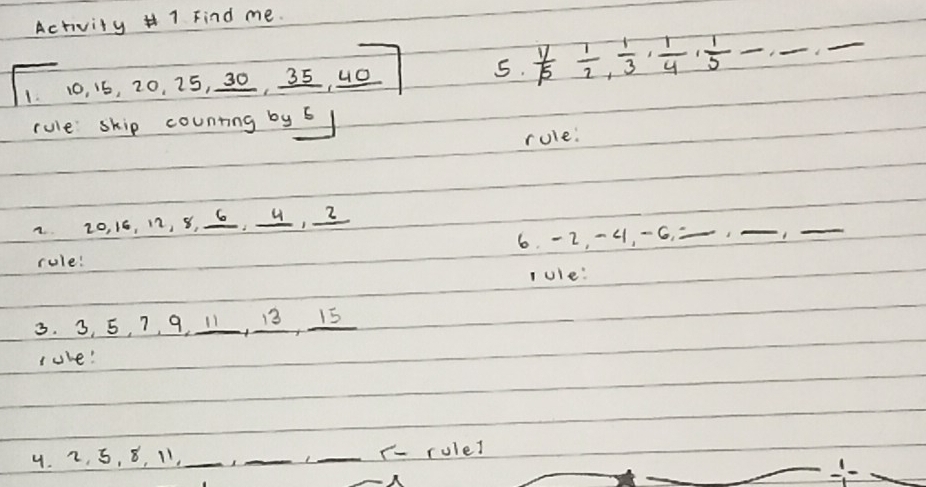 Activity # 1 Find me.
1. 10, 15, 20, 25, 30, 35, 40
rule: skip counting by 5
2. 20, 16, 12, 8, 6, 4, 2
rule:
3. 3, 5, 7, 9, 11, 13, 15
rule:
4. 2, 5, 8, 11, __, __, __ ← rule?
5. 1/2, 1/3, 1/4, 1/5 __, __, __
rule:
6. -2, -4, -6, __, __, __
rule: